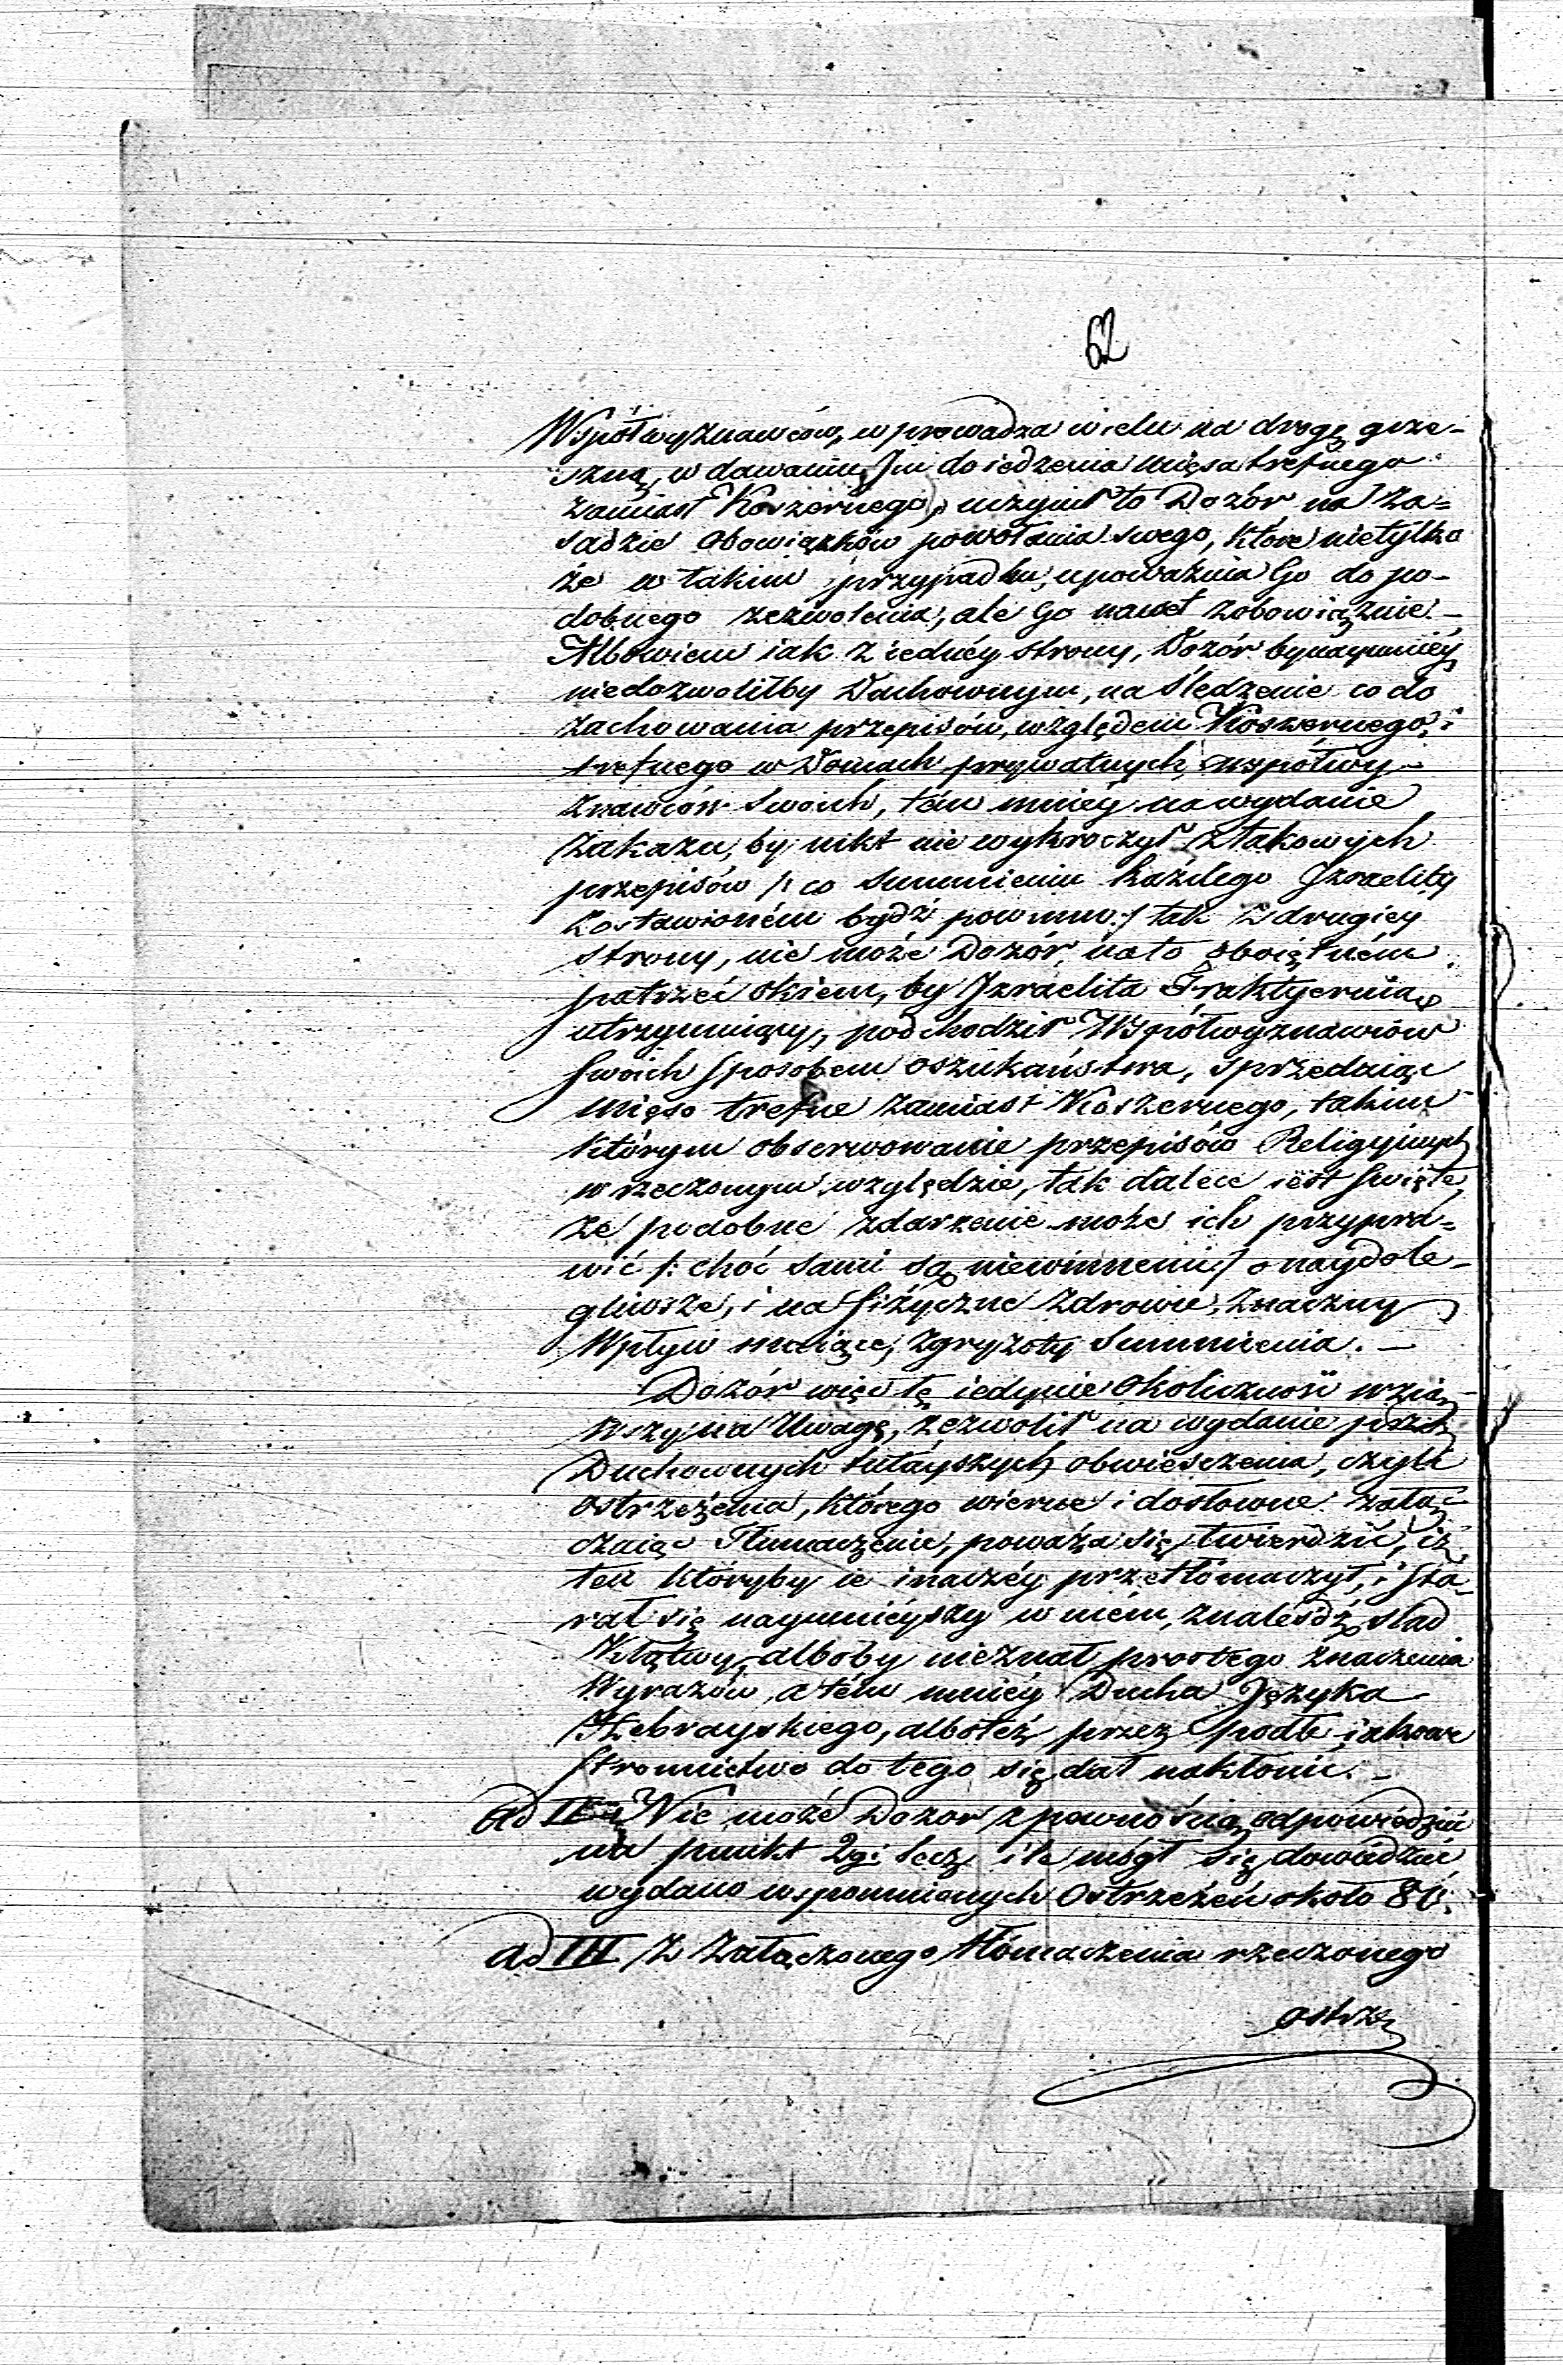 62
Współwyznawców, wprowadza wielu na drogę grze-
szną, w dawaniu Im do iedzenia mięsa trefnego
zamiast Koszernego, uczynił to Dozór na za-
sadzie obowiązków powołania swego, które nietylko
że w takim przypadku, upoważnia Go do po-
dobnego zezwolenia, ale Go nawet zobowiązuie.-
Albowiem iak z iednéy strony, Dozór bynaymniéy
niedozwoliłby Duchownym, na śledzenie co do
zachowania przepisów, względem Koszernego, i
trefnego w Domach prywatnych, współwy-
znawców swoich, tém mniéy na wydanie
zakazu, by nikt nie wykroczył z takowych
przepisów /: co summieniu każdego Izraelity
zostawioném bydź powinno :/ tak z drugiey
strony, nie może Dozór, na to oboiętném
patrzeć okiem, by Izraelita Traktyernią
utrzymuiący, podchodził Współwyznawców
swoich sposobem oszukaństwa, sprzedaiąc
mięso trefne zamiast Koszernego, takim
którym obserwowanie przepisów Religyinych
w rzeczonym względzie, tak dalece iest święte,
że podobne zdarzenie może ich przypra-
wić /: choć sami są niewinnemi :/ o naydole-
gliwsze, i na fizyczne zdrowie, znaczny
Wpływ maiące, zgryzoty Summienia. -
Dozór więc tę iedynie okoliczność wzią-
wszy na Uwagę, zezwolił na wydanie przez
Duchownych tutayszych obwieszczenia, czyli
ostrzeżenia, którego wierne i dosłowne załą-
czaiąc Tłumaczenie, poważa się twierdzić, iż
ten któryby ie inaczéy przetłómaczył, i sta-
rał się naymnieyszy w niém, znaleśdź ślad
Klątwy, alboby nieznał prostego znaczenia
Wyrazów, a tém mniéy Ducha Języka
Hebrayskiego, albo też przez podłe iakowe
stronnictwo do tego się dał nakłonić. -
ad II Nie może Dozor z pewnością odpowiedzieć
na punkt 2gi lecz ile mógł się dowiedzieć
wydano wspomnionych Ostrzeżeń około 80.
ad III Z Załączonego tłómaczenia rzeczonego
ostrze